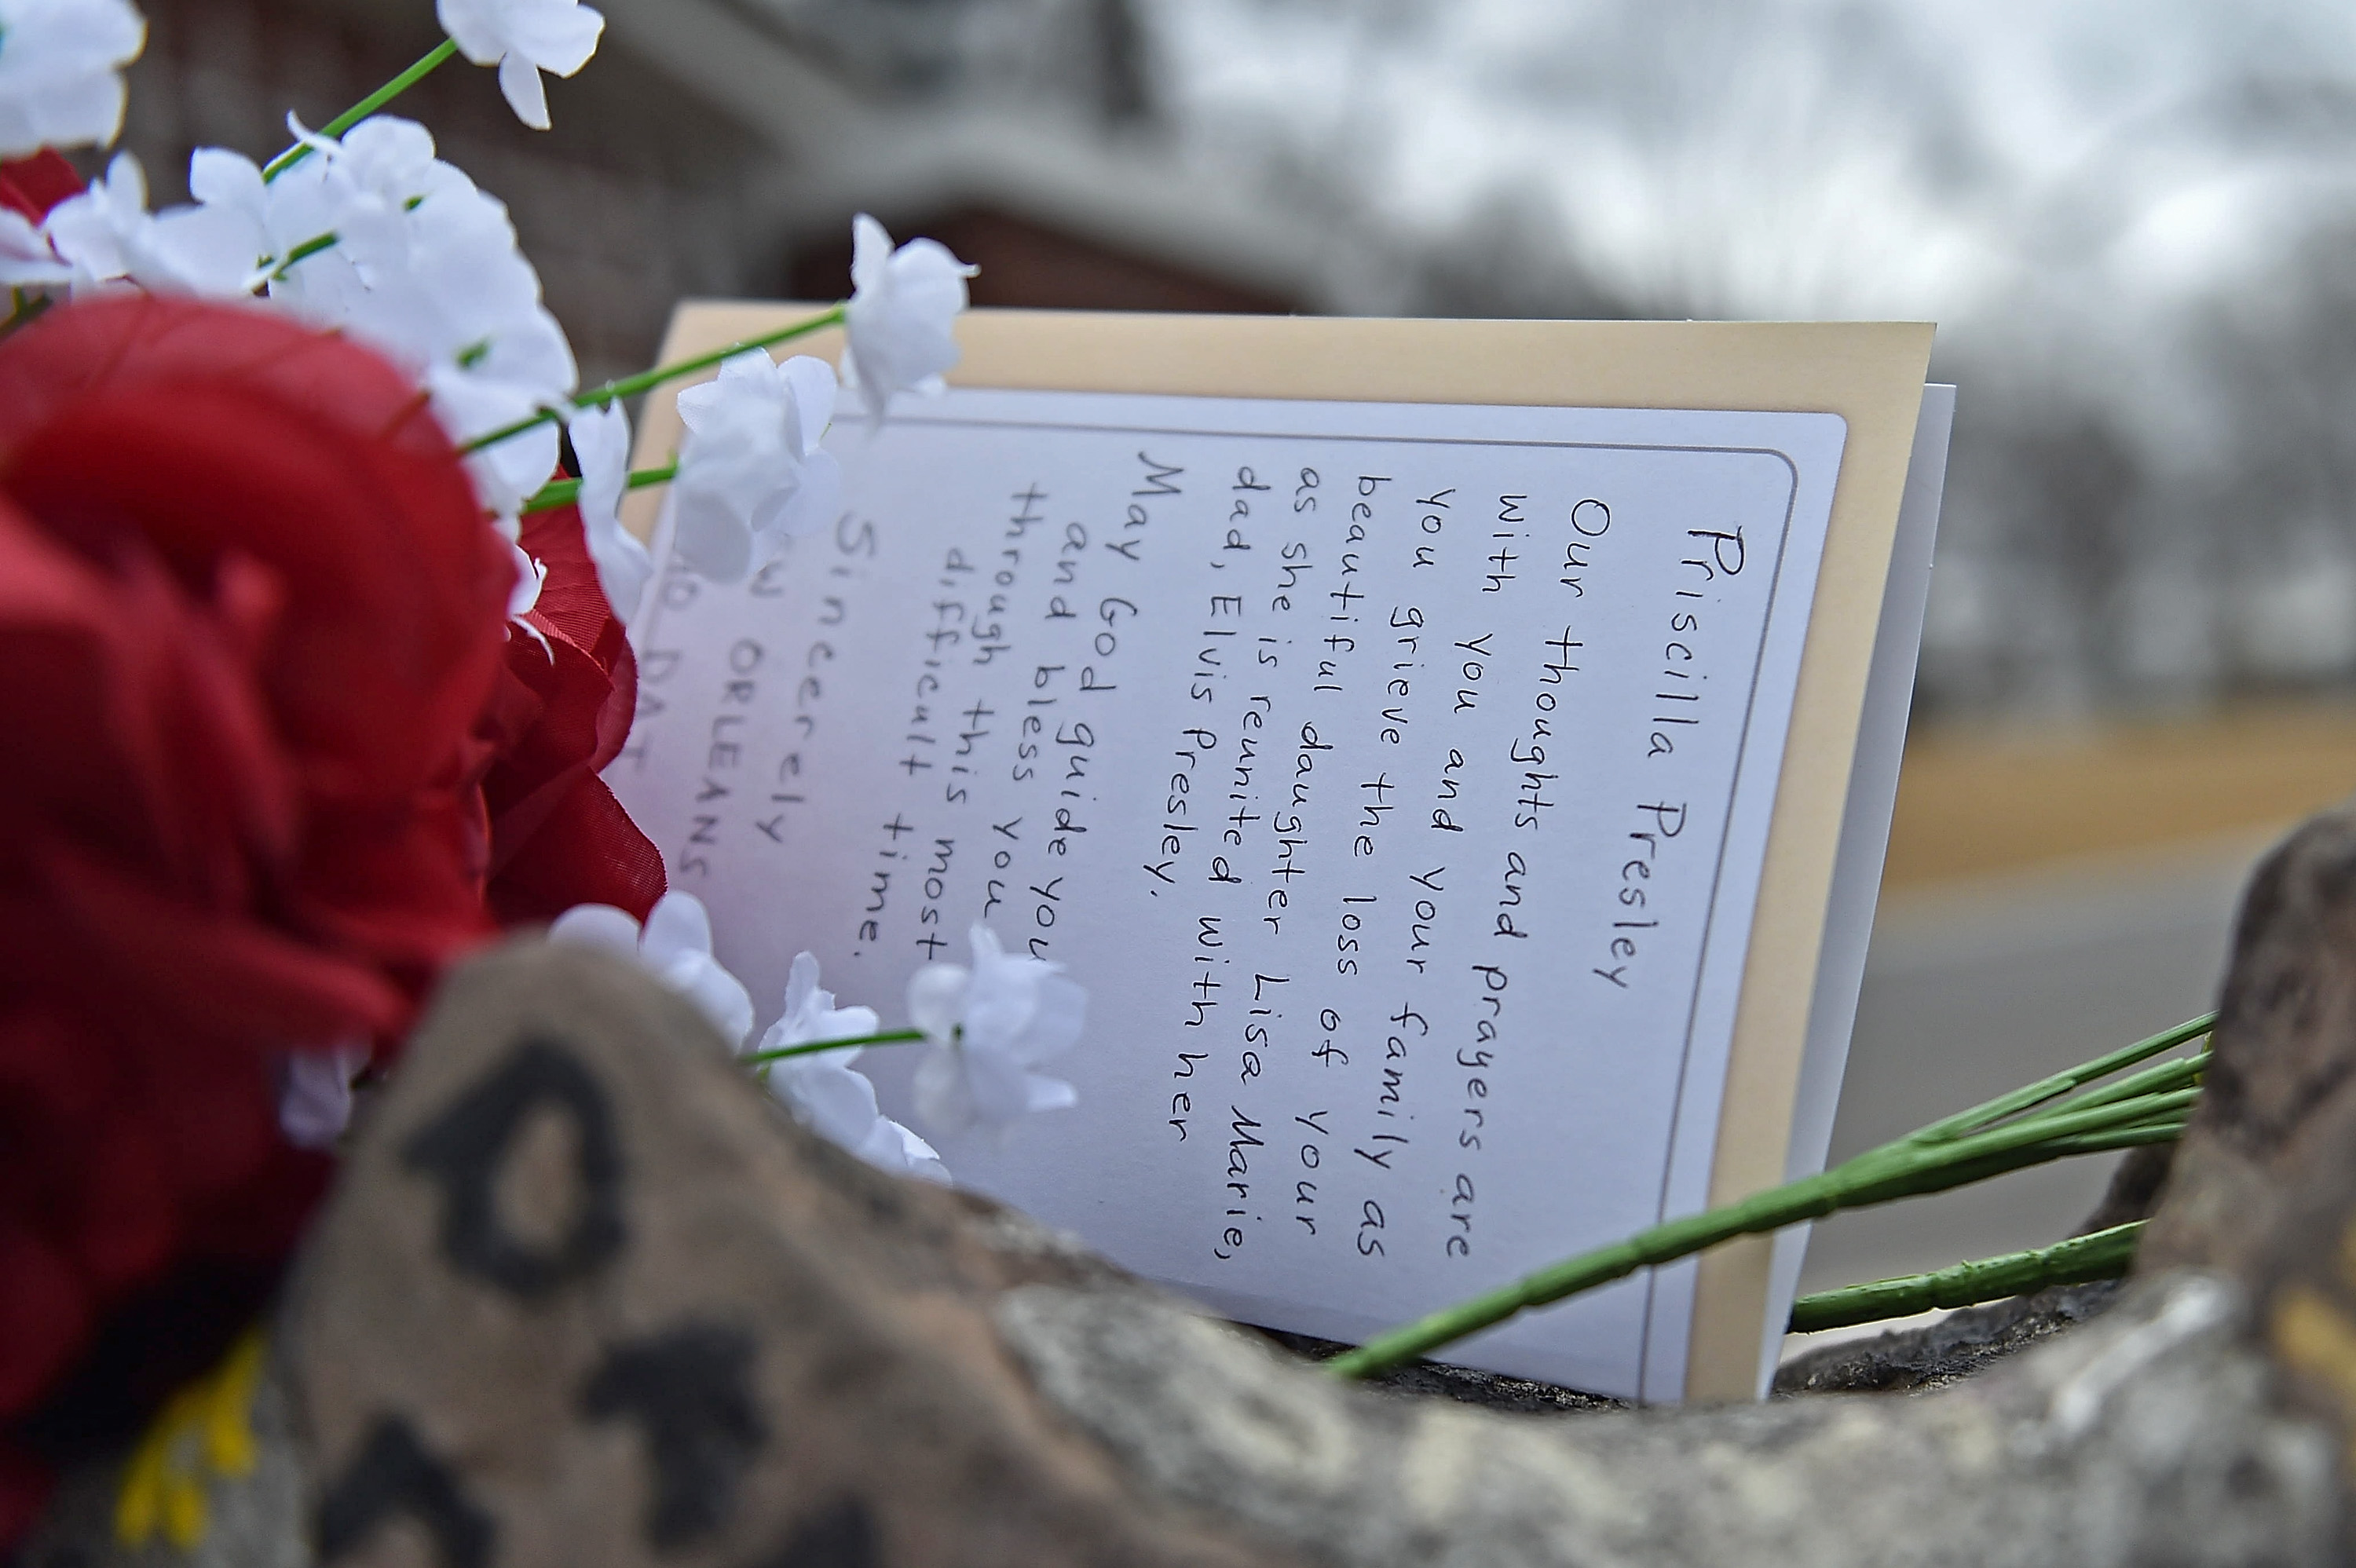 Priscilla Presley
Our thoughts and prayers are
with you and your family as
you grieve the loss of your
beautiful daughter Lisa Marie,
as she is reunited with her
dad, Elvis Presley.
May God guide you
and bless you
through this most
difficult time.
Sincerely
ORLEANS
DAT